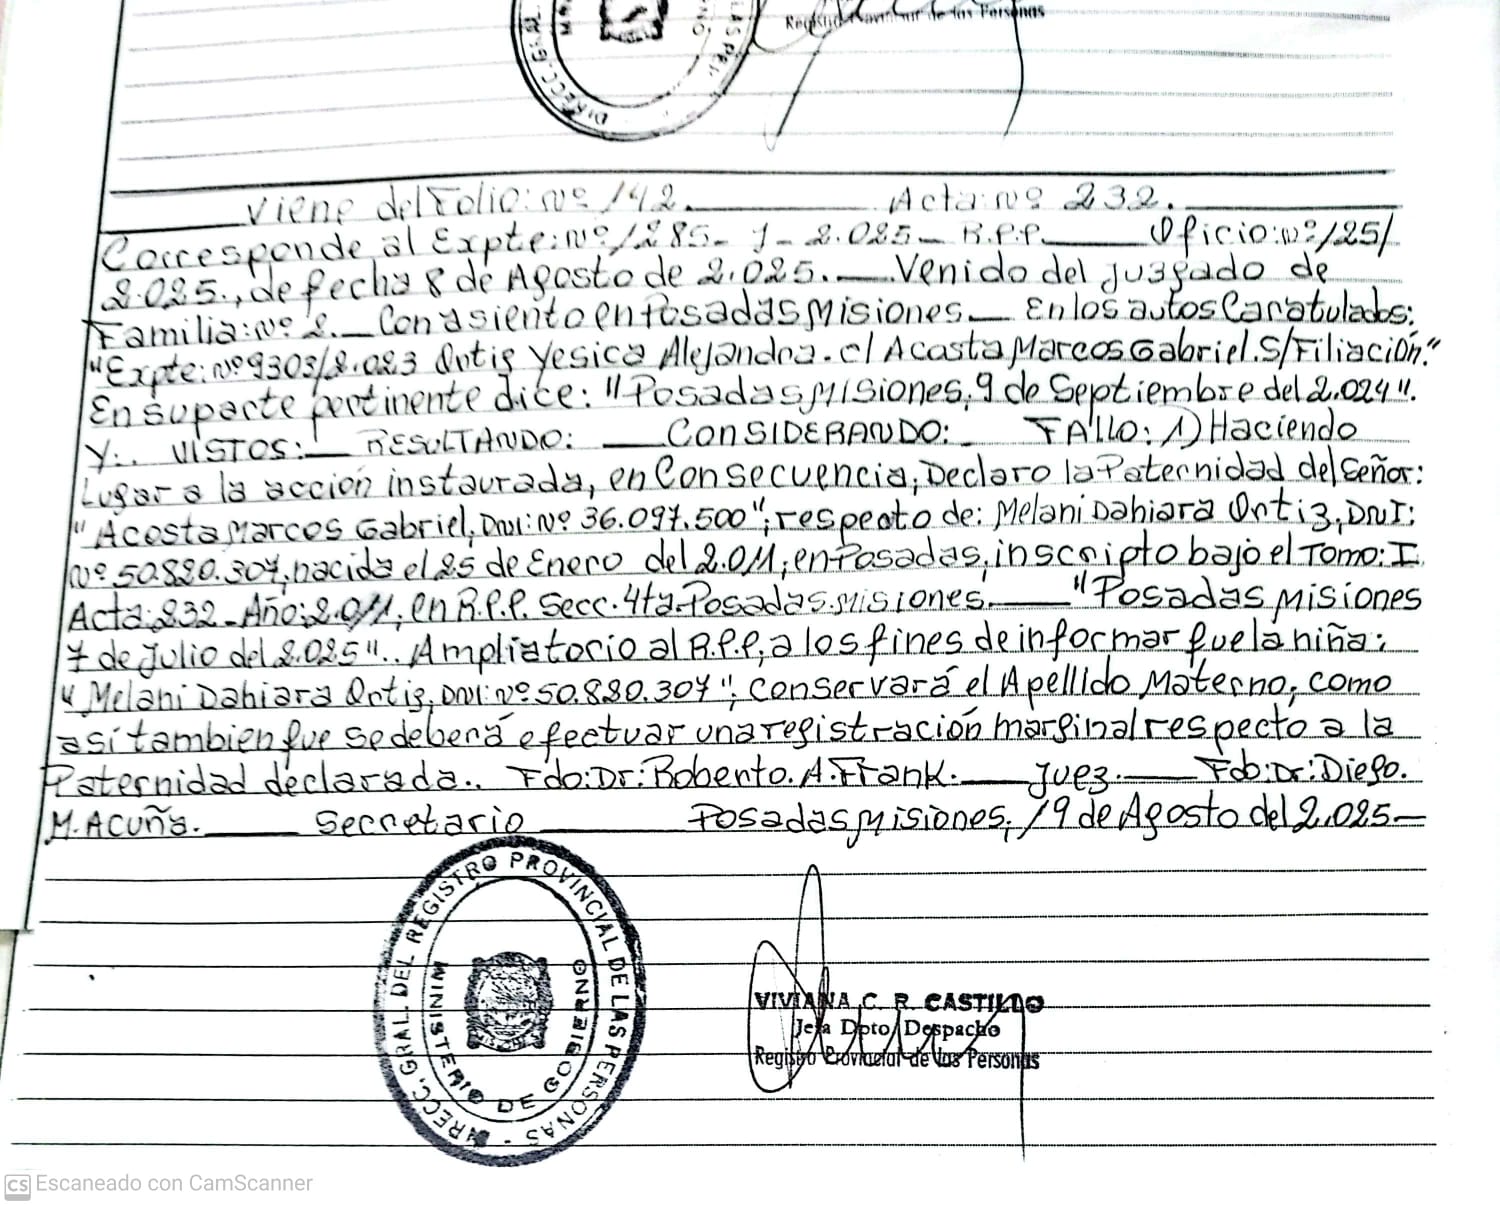 Registro Provincial de las Personas
Viene del Folio: Nº 142. Acta: Nº 232.
Corresponde al Expte: Nº 1285- Y - 2.025- R.P.P. Oficio: Nº 125/
2.025., de fecha 8 de Agosto de 2.025. Venido del Juzgado de
Familia: Nº 2. Con asiento en Posadas Misiones En los autos Caratulados:
"Expte: Nº 9303/2.023 Ortiz Yesica Alejandra. c/ Acosta Marcos Gabriel. S/Filiación."
En su parte pertinente dice: "Posadas Misiones, 9 de Septiembre del 2.024".
Y:. VISTOS: RESULTANDO: CONSIDERANDO: FALLO: 1) Haciendo
Lugar a la acción instaurada, en Consecuencia, Declaro la Paternidad del Señor:
"Acosta Marcos Gabriel, DNI: Nº 36.097.500"; respecto de: Melani Dahiara Ortiz, DNI:
Nº 50.820.307, nacida el 25 de Enero del 2.011, en Posadas, inscripto bajo el Tomo: I
Acta: 232 - Año: 2.011, en R.P.P. Secc. 4ta Posadas Misiones. "Posadas Misiones
7 de Julio del 2.025". Ampliatorio al R.P.P, a los fines de informar que la niña:
"Melani Dahiara Ortiz, DNI: Nº 50.820.307"; Conservará el Apellido Materno, como
así tambien que se deberá efectuar una registración marginal respecto a la
Paternidad declarada.. Fdo: Dr: Roberto. A. Frank. Juez. Fdo: Dr: Diego.
M. Acuña. Secretario Posadas Misiones, 19 de Agosto del 2.025
DIRECC. GRAL. DEL REGISTRO PROVINCIAL DE LAS PERSONAS -
MINISTERIO DE GOBIERNO
VIVIANA C. R. CASTILLO
Jefa Dpto Despacho
Registro Provincial de las Personas
CS Escaneado con CamScanner